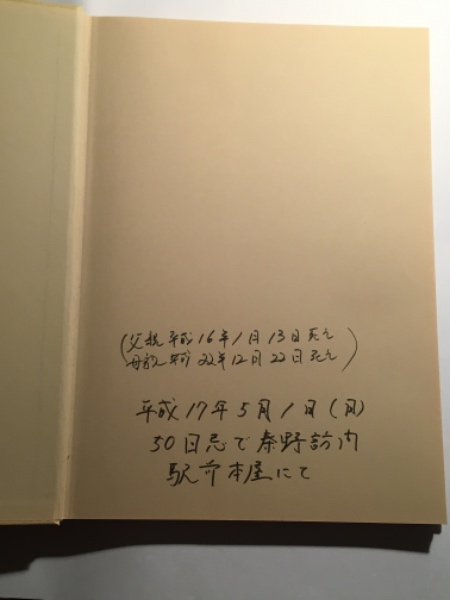 (父親 平成16年1月13日死亡
母親 平成22年12月22日死亡)
平成17年5月1日(月)
50日忌で秦野訪問
駅前本屋にて